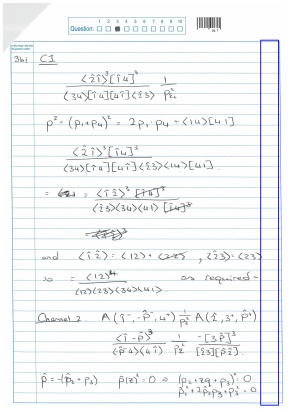 Question: 1 2 3 4 5 6 7 8 9 10
3bi C1
<2̂1̂>³[1̂4]³ / <34>[1̂4][41̂]<2̂3> 1/P²₂₁
P² = (P₁+P₄)² = 2P₁·P₄ = <14>[41]
<2̂1̂>³[1̂4]³ / <34>[1̂4][41̂]<2̂3><14>[41]
= <1̂2̂>³[14]³ / <2̂3><34><41>[14]³
and <1̂2̂> = <12> + , <2̂3> = <23>
so = <12>⁴ / <12><23><34><41> as required
Channel 2 A(1̂⁻, -P̂⁻, 4⁺) 1/P² A(2̂, 3⁺, P̂⁺)
<1̂-P̂>³ / <-P̂4><41̂> 1/P² -[3P̂]³ / [2̂3][P̂2̂]
P̂ = -(P̂₂+P₃) P̂(z)² = 0 ⇒ (P₂+zq+P₃)² = 0